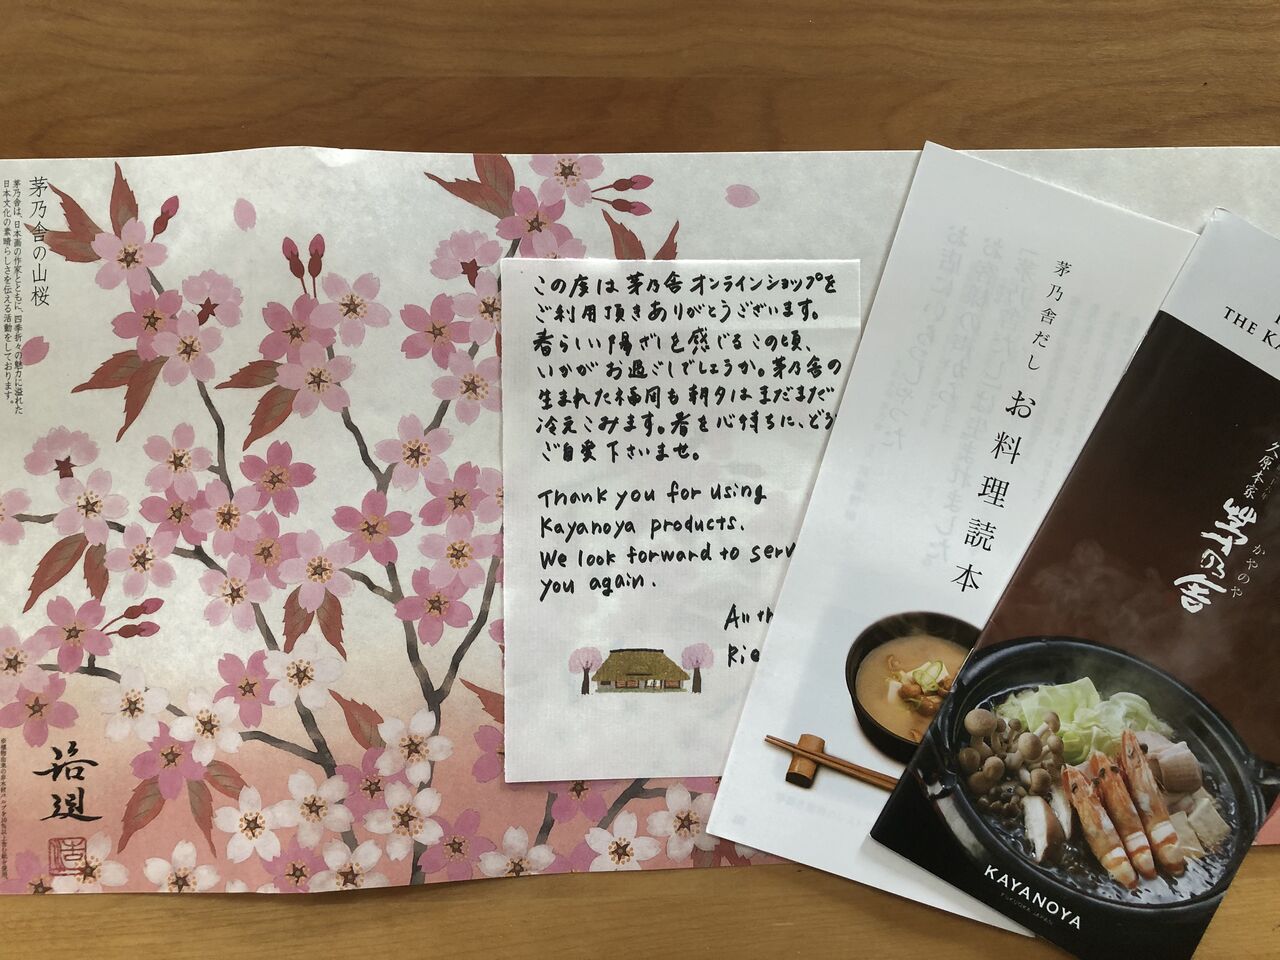 茅乃舎の山桜
茅乃舎は、日本画の作家とともに、四季折々の魅力に溢れた
日本文化の素晴らしさを伝える活動をしております。
この度は茅乃舎オンラインショップを
ご利用頂きありがとうございます。
春らしい陽ざしを感じるこの頃、
いかがお過ごしでしょうか。茅乃舎の
生まれた福岡も朝夕はまだまだ
冷えこみます。春を心待ちに、どう
ご自愛下さいませ。
Thank you for using
Kayanoya products.
We look forward to serv
you again.
All th
Rie
茅乃舎だし
お料理読本
THE KA
久原本家
茅乃舎
かやのや
KAYANOYA
FUKUOKA JAPAN